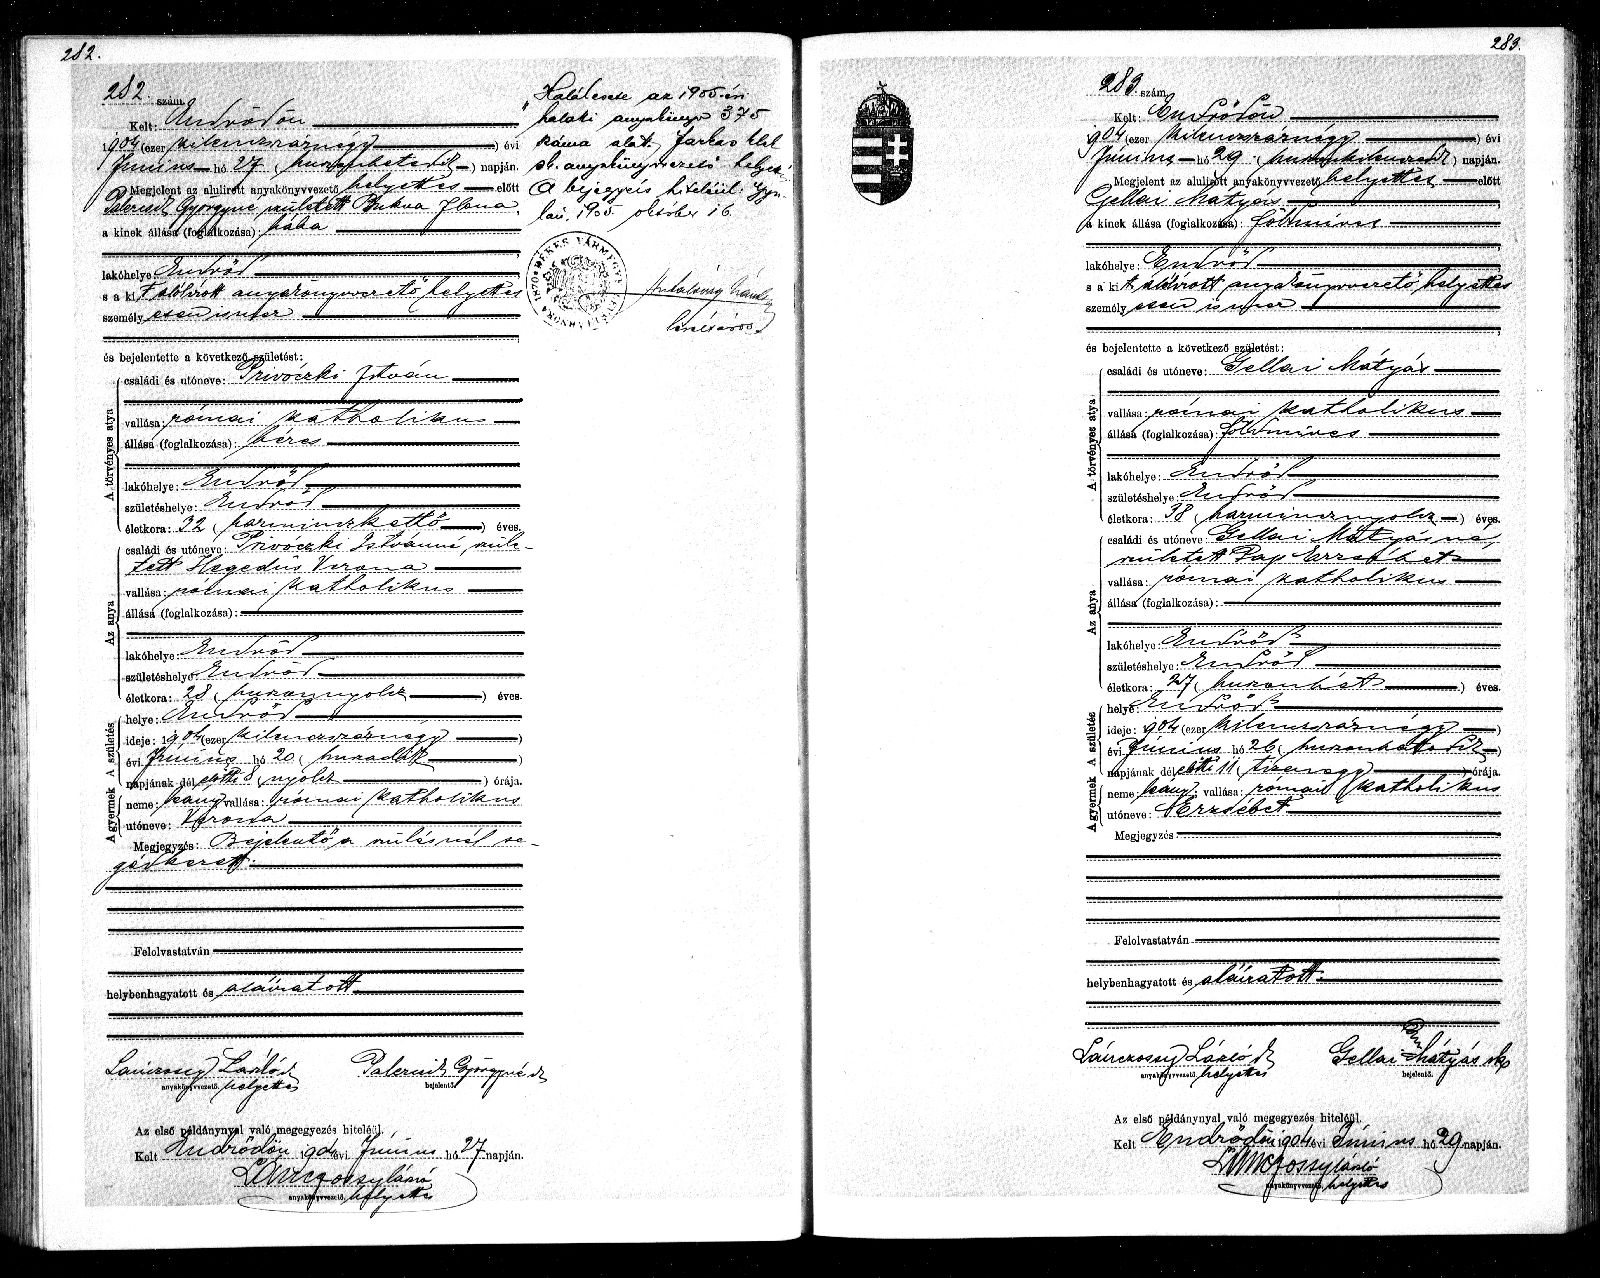 282.
282. szám
Kelt: Endrődön
1904 (ezer kilenczszáznégy) évi
Június hó 27 (huszonhetedik) napján.
Megjelent az alulirott anyakönyvvezető helyettes előtt
Györgyné született Bukva Ilona,
a kinek állása (foglalkozása): bába
lakóhelye: Endrőd
s a kit alólirott anyakönyvvezető helyettes
személyesen ismer
és bejelentette a következő születést:
A törvényes atya
családi és utóneve: Privóczki István
vallása: római katholikus
állása (foglalkozása): béres
lakóhelye: Endrőd
születéshelye: Endrőd
életkora: 32 (harminczkettő) éves.
Az anya
családi és utóneve: Privóczki Istvánné szüle-
tett Hegedüs Verona
vallása: római katholikus
állása (foglalkozása):
lakóhelye: Endrőd
születéshelye Endrőd
életkora: 28 (huszonnyolcz) éves.
A gyermek A születés
helye: Endrőd
ideje: 1904 (ezer kilenczszáznégy)
évi Június hó 20 (huszadik)
napjának dél előtti 8 (nyolcz) órája.
neme: leány vallása: római katholikus
utóneve: Verona
Megjegyzés: Bejelentő a szülésnél se-
gédkezett.
Felolvastatván
helybenhagyatott és aláíratott
Lánczossy László
anyakönyvvezető. helyettes
Györgyné
bejelentő.
Az első példánynyal való megegyezés hiteléül.
Kelt Endrődön 1904 évi Június hó 27 napján.
Lánczossy László
anyakönyvvezető, helyettes
Halálesete az 1905. évi
halotti anyakönyv 375
száma alatt. Farkas
anyakönyvvezető helyett.
A bejegyzés hiteléül: Gyu-
lán. 1905 október 16.
BÉKÉS VÁRMEGYE LEVÉLTÁRNOKA 1870
283.
283. szám
Kelt: Endrődön
1904 (ezer kilenczszáznégy) évi
Június hó 29 (huszonkilenczedik) napján.
Megjelent az alulirott anyakönyvvezető helyettes előtt
Gellai Mátyás
a kinek állása (foglalkozása): földmives
lakóhelye: Endrőd
s a kit alólirott anyakönyvvezető helyettes
személyesen ismer
és bejelentette a következő születést:
A törvényes atya
családi és utóneve: Gellai Mátyás
vallása: római katholikus
állása (foglalkozása): földmives
lakóhelye: Endrőd
születéshelye: Endrőd
életkora: 38 (harmincznyolcz) éves.
Az anya
családi és utóneve: Gellai Mátyásné,
született Pap Erzsébet
vallása: római katholikus
állása (foglalkozása):
lakóhelye: Endrőd
születéshelye: Endrőd
életkora: 27 (huszonhét) éves.
A gyermek A születés
helye: Endrőd
ideje: 1904 (ezer kilenczszáznégy)
évi Június hó 26 (huszonhatodik)
napjának dél előtti 11 (tizenegy) órája.
neme: leány; vallása: római katholikus
utóneve: Erzsébet
Megjegyzés
Felolvastatván
helybenhagyatott és aláíratott.
Lánczossy László
anyakönyvvezető. helyettes
Gellai Mátyás
bejelentő.
Az első példánynyal való megegyezés hiteléül.
Kelt Endrődön 1904 évi Június hó 29 napján.
Lánczossy László
anyakönyvvezető, helyettes